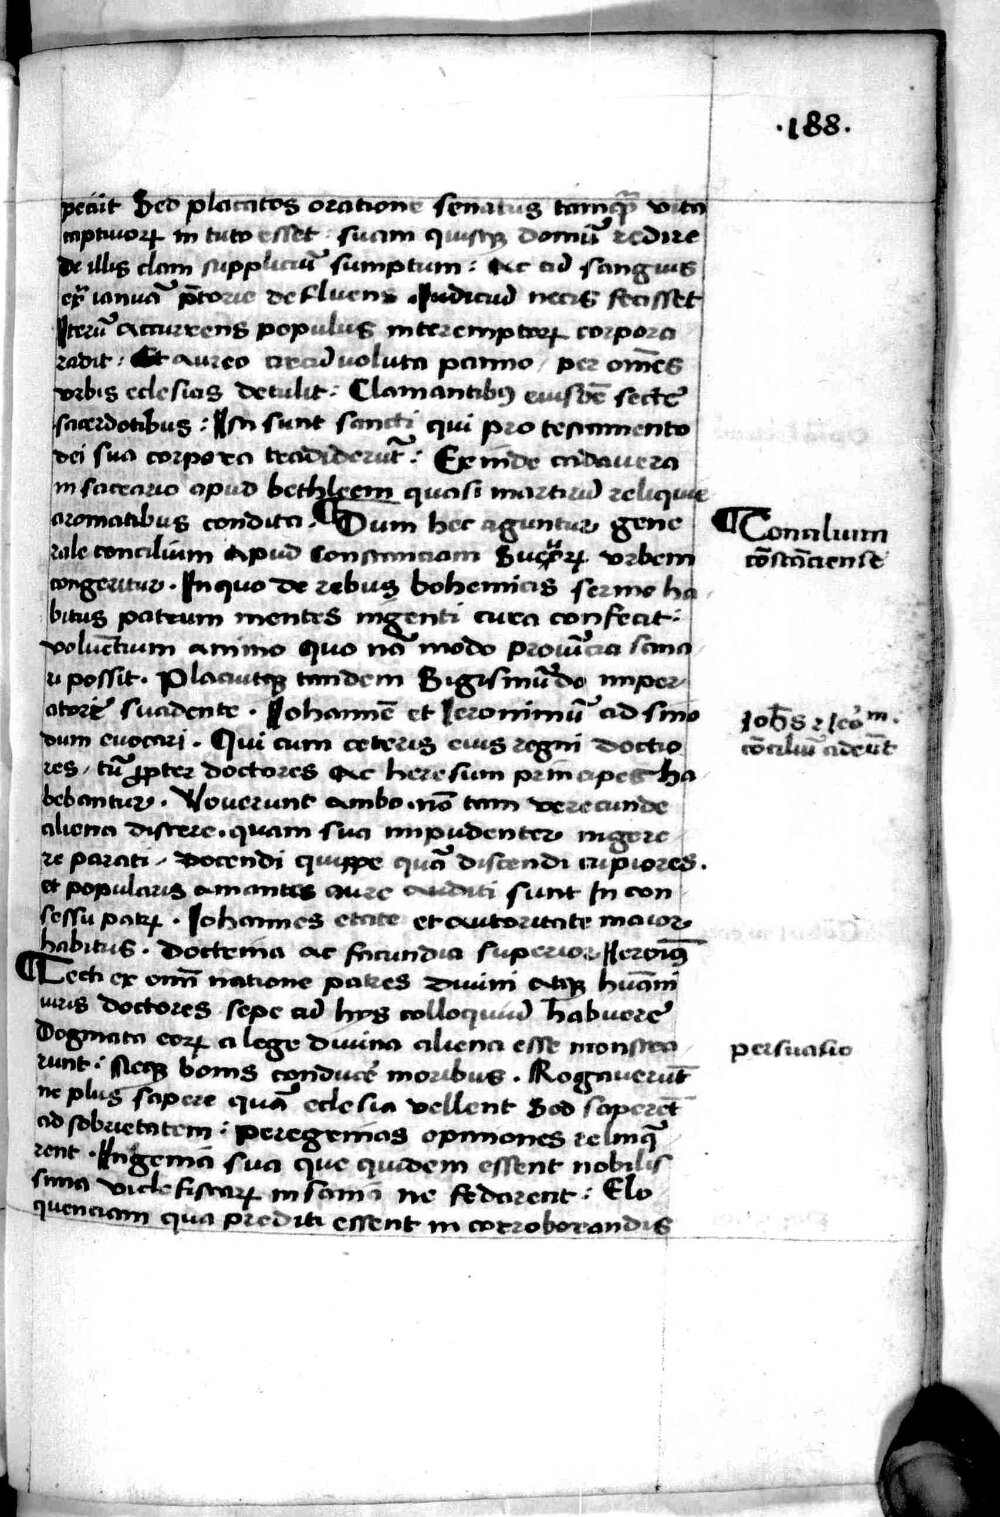 ·188·
peciit Sed placatos oratione senatus tamqꝫ vita
captiuoꝝ in tuto esset : suam quisqꝫ domū redire
De illis clam suppliciū sumptum : Ac cū sanguis
ex ianuā p̄torie defluens . Judiciū necis fecisset
Iterū accurrens populus interemptoꝝ corpora
radit : Et aureo circūvoluta panno / per om̄es
vrbis eclesias detulit : Clamantibꝰ eiusdē secte
sacerdotibus : Isti sunt sancti qui pro testamento
dei sua corpora tradiderūt : Exinde cadauera
in sacrario apud bethleem quasi martirū reliquie
aromatibus condita . ¶ Dum hec aguntur gene
rale concilium apud Constanciam Sueuoꝝ vrbem
congeritur . In quo de rebus bohemicis sermo ha
bitus patrum mentes ingenti cura confecit :
voluētium animo quo nā modo prouīcia sana
ri possit . Placuitqꝫ tandem Sigismūdo imper
atore suadente . Johannē et Jeronimū ad sino
dum euocari . Qui cum ceteris eius regni doctio
res / tū p̄pter doctores Ac heresum principes ha
bebantur . Venerunt ambo . nō tam verecunde
aliena discere . quam sua impudenter ingere
re parati / docendi quippe quā discendi cupiores .
et popularis amantes aure auditi sunt In con
sessu patꝝ . Johannes etate et autoritate maior
habitus . Doctrina ac facundia superior Jeroīꝰ
¶ Lecti ex om̄i natione patres diuini atqꝫ hūani
iuris doctores sepe cū hys colloquiū habuere
Dogmata eoꝝ a lege diuina aliena esse monstra
runt : Neqꝫ bonis conducē moribus . Rogauerūt
ne plus sapere quā eclesia vellent Sed saperēt
ad sobrietatem : peregrinas opiniones relinqꝫ
rent . Ingenia sua que quidem essent nobilis
sima viclefistaꝝ insania ne fedarent : Elo
quenciam qua prediti essent in corroborandis
¶ Concilium
cōstāciense
Joh̄s ⁊ Jeroᵐ.
cōciliū adeūt
persuasio